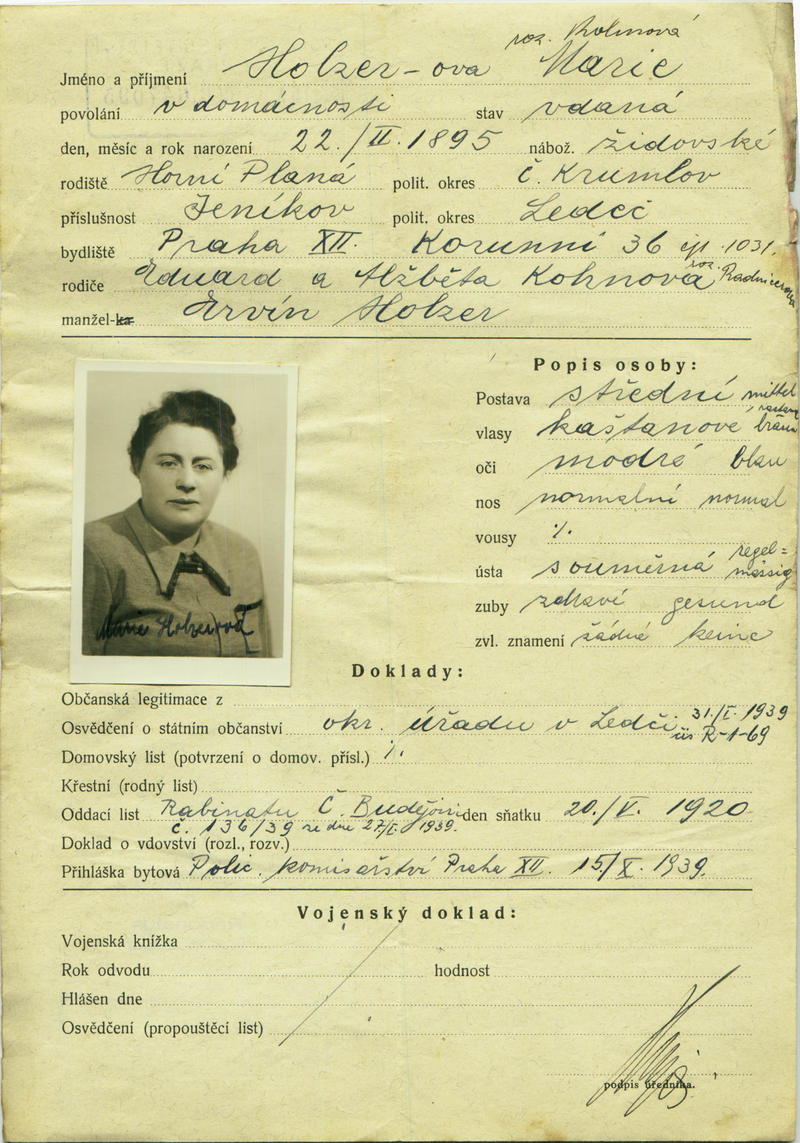 roz. Kohnová
Jméno a příjmení Holzer-ova Marie
povolání v domácnosti stav vdaná
den, měsíc a rok narození 22./II. 1895 nábož. židovské
rodiště Horní Planá polit. okres Č. Krumlov
příslušnost Jeníkov polit. okres Ledeč
bydliště Praha XII. Korunní 36 čp. 1031.
rodiče Eduard a Alžběta Kohnová roz.
manžel-ka Ervín Holzer
Popis osoby:
Postava střední mittel
vlasy kaštanové braun
oči modré blau
nos normalní normal
vousy ./.
ústa souměrná regel=
mässig
zuby zdraví gesund
zvl. znamení žádné keine
Marie Holzerová
Doklady:
Občanská legitimace z
Osvědčení o státním občanství okr. úřadu v Ledči 31./I. 1939
čís R-1-69
Domovský list (potvrzení o domov. přísl.) ./.
Křestní (rodný list)
Oddací list Rabinatu Č. Budějovi den sňatku 20./V. 1920
č. 136/39 ze dne 27/I. 1939.
Doklad o vdovství (rozl., rozv.)
Přihláška bytová Polic. komisařství Praha XII. 15/X. 1939.
Vojenský doklad:
Vojenská knížka
Rok odvodu hodnost
Hlášen dne
Osvědčení (propouštěcí list)
podpis úředníka.